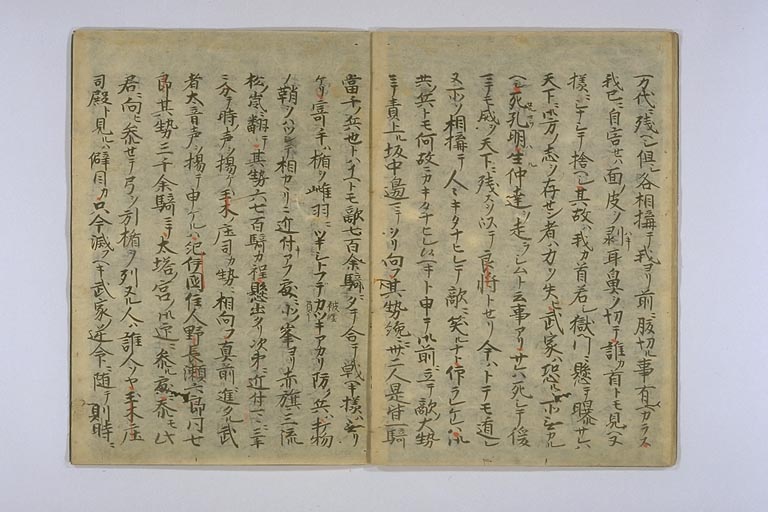 万代ニ残ヘシ但シ各相搆テ我ヨリ前ニ腹切ル事有ヘカラス
我已ニ自害セハ面ノ皮ヲ剥耳鼻ヲ切テ誰カ首トモ見ヘヌ
様ニシナシテ捨ヘシ其故ハ我カ首若シ獄門ニ懸テ曝サレハ
天下ニ宮方ノ志ヲ存セン者ハ力ヲ失ヒ武家ハ恐
死孔明生仲達ヲ走ラシムト云事アリサレハ死シテ後
ニテモ威ヲ天下ニ残スヲ以テ良将トセリ今ハトテモ遁レヌ
所ソ相搆テ人々キタナヒレテ敵ニ笑ルナト仰ラレケレハ
共ノ兵トモ何故ニカキタナヒレ候ヘキト申テ御前ニ立テ敵ノ大勢
ニテ責上ル坂中ノ邊ニテヲリ向フ其勢纔ニ卅二人是皆一騎
當千ノ兵也トハイヘトモ敵七百余騎ニシテ合テ戦ヘキ様ハナカリ
ケリ寄手ハ楯ヲ雌羽ニツキシトフテカツキアカリ防ク兵ハ打物
ノ鞘ヲハツシテ相カカリニ近付アフ處ニ北ノ峯ヨリ赤旗三流
松ノ嵐ニ翻シテ其勢六七百騎カ程懸出タリ次第ニ近付
ニ分テ時ノ声ヲ揚テ玉木ノ庄司カ勢ニ相向フ真前進タル武
者大音声ヲ揚テ申ケルハ紀伊國ノ住人野長瀬六郎同七
郎其勢三千余騎ニテ大塔ノ宮ノ御迎ニ参ル處ニ忝モ此
君ニ向ヒ参セテ弓ヲ引楯ヲ列ヌル人ハ誰人ソヤ玉木ノ庄
司殿ト見ルハ僻目カ只今滅フヘキ武家ノ逆命ニ随テ則時ニ